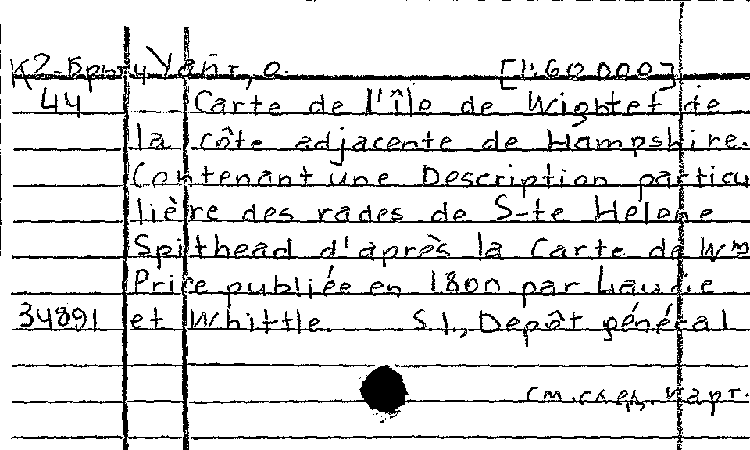 К2-Брит Уайт, о. [1:60 000]
44 Carte de l'île de Wight et de
la côte adjacente de Hampshire.
Contenant une Description particu
lière des rades de S-te Hélène
Spithead d'après la Carte de Wm
Price publiée en 1800 par Laurie
34891 et Whittle. S.l., Depôt général
См. след. карт.